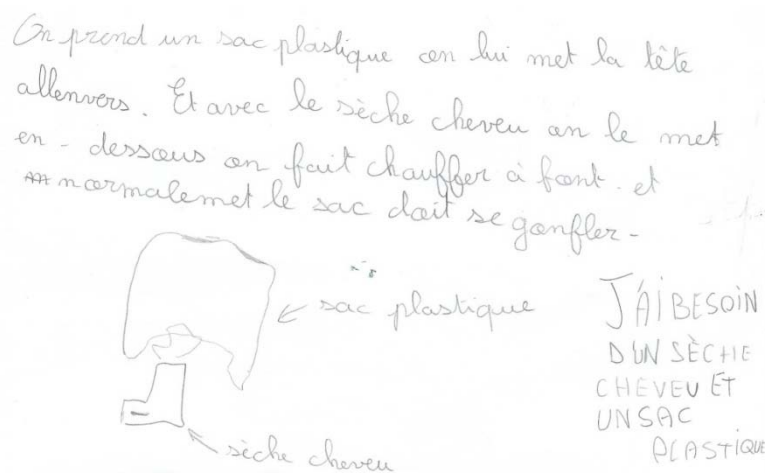 On prend un sac plastique on lui met la tête
allenvers. Et avec le sèche cheveu on le met
en - dessous on fait chauffer à font. et
normalemet le sac doit se gonfler -
sac plastique
sèche cheveu
J'AI BESOIN
D'UN SÈCHE
CHEVEU ET
UN SAC
PLASTIQUE